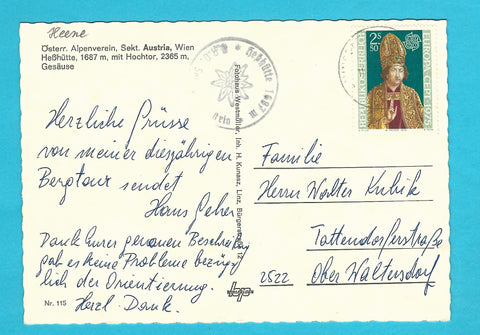 Heene
Österr. Alpenverein, Sekt. Austria, Wien
Heßhütte, 1687 m, mit Hochtor, 2365 m,
Gesäuse
Heßhütte 1687 m
2S
50
REPUBLIK ÖSTERREICH
Herzliche Grüsse
von meiner diesjährigen
Bergtour sendet
Hans Peher
Dank Eurer genauen Beschreibg
gab es keine Probleme bezüg-
lich der Orientierung.
Herzl. Dank.
Nr. 115
Fotohaus Westmüller, Inh. H. Kunesz, Linz, Bürgerstraße 12
Familie
Herrn Walter Kubik
Tattendorferstraße
2522 Ober Waltersdorf